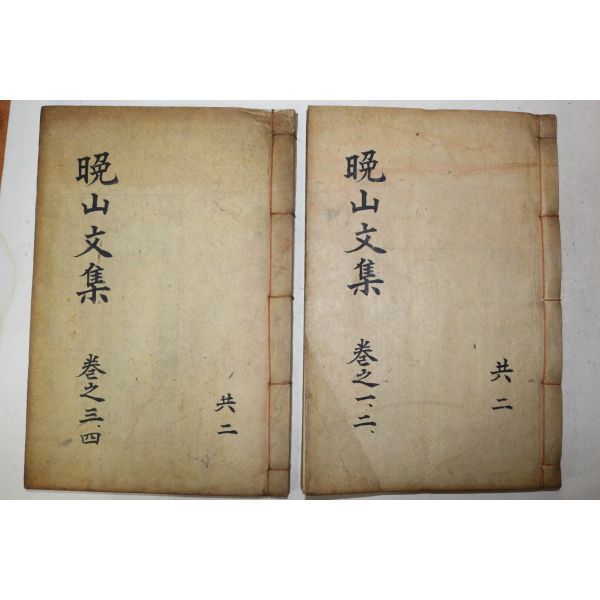 晩山文集
巻之一、二、
共二
晩山文集
巻之三、四
共二